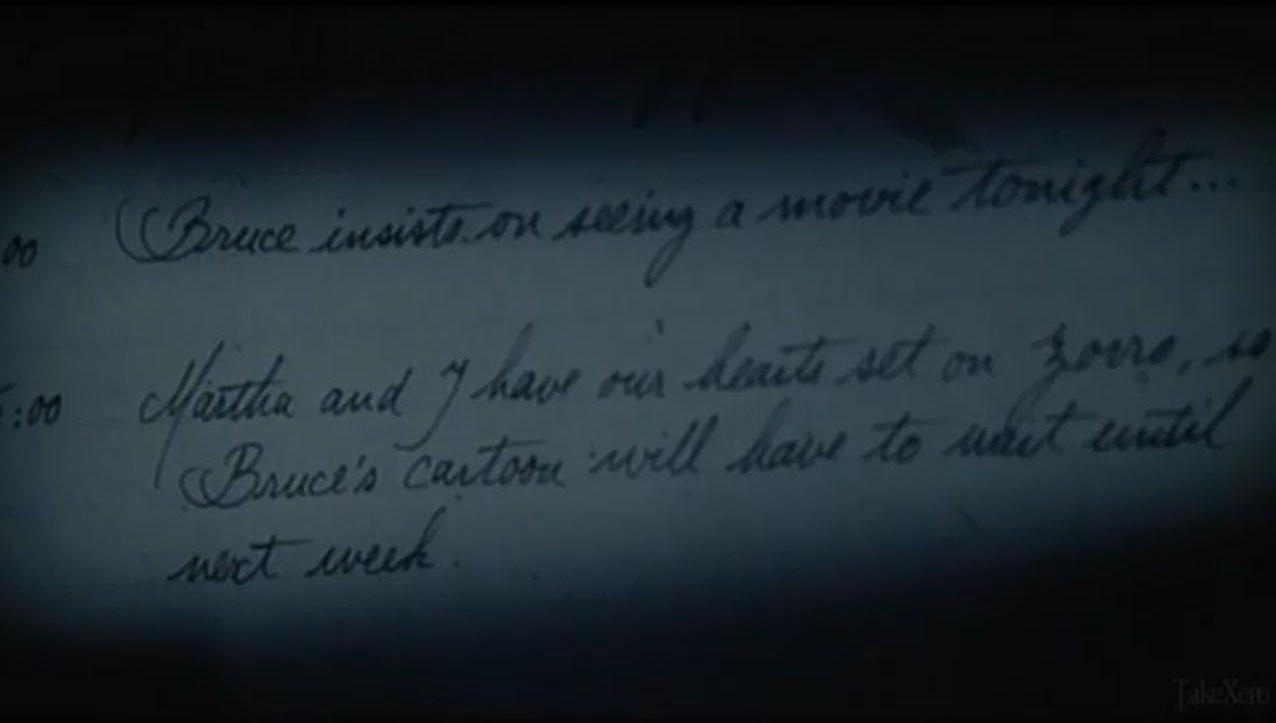 00 Bruce insists on seeing a movie tonight...
:00 Martha and I have our hearts set on Zorro, so
Bruce's cartoon will have to wait until
next week.
TakeXero